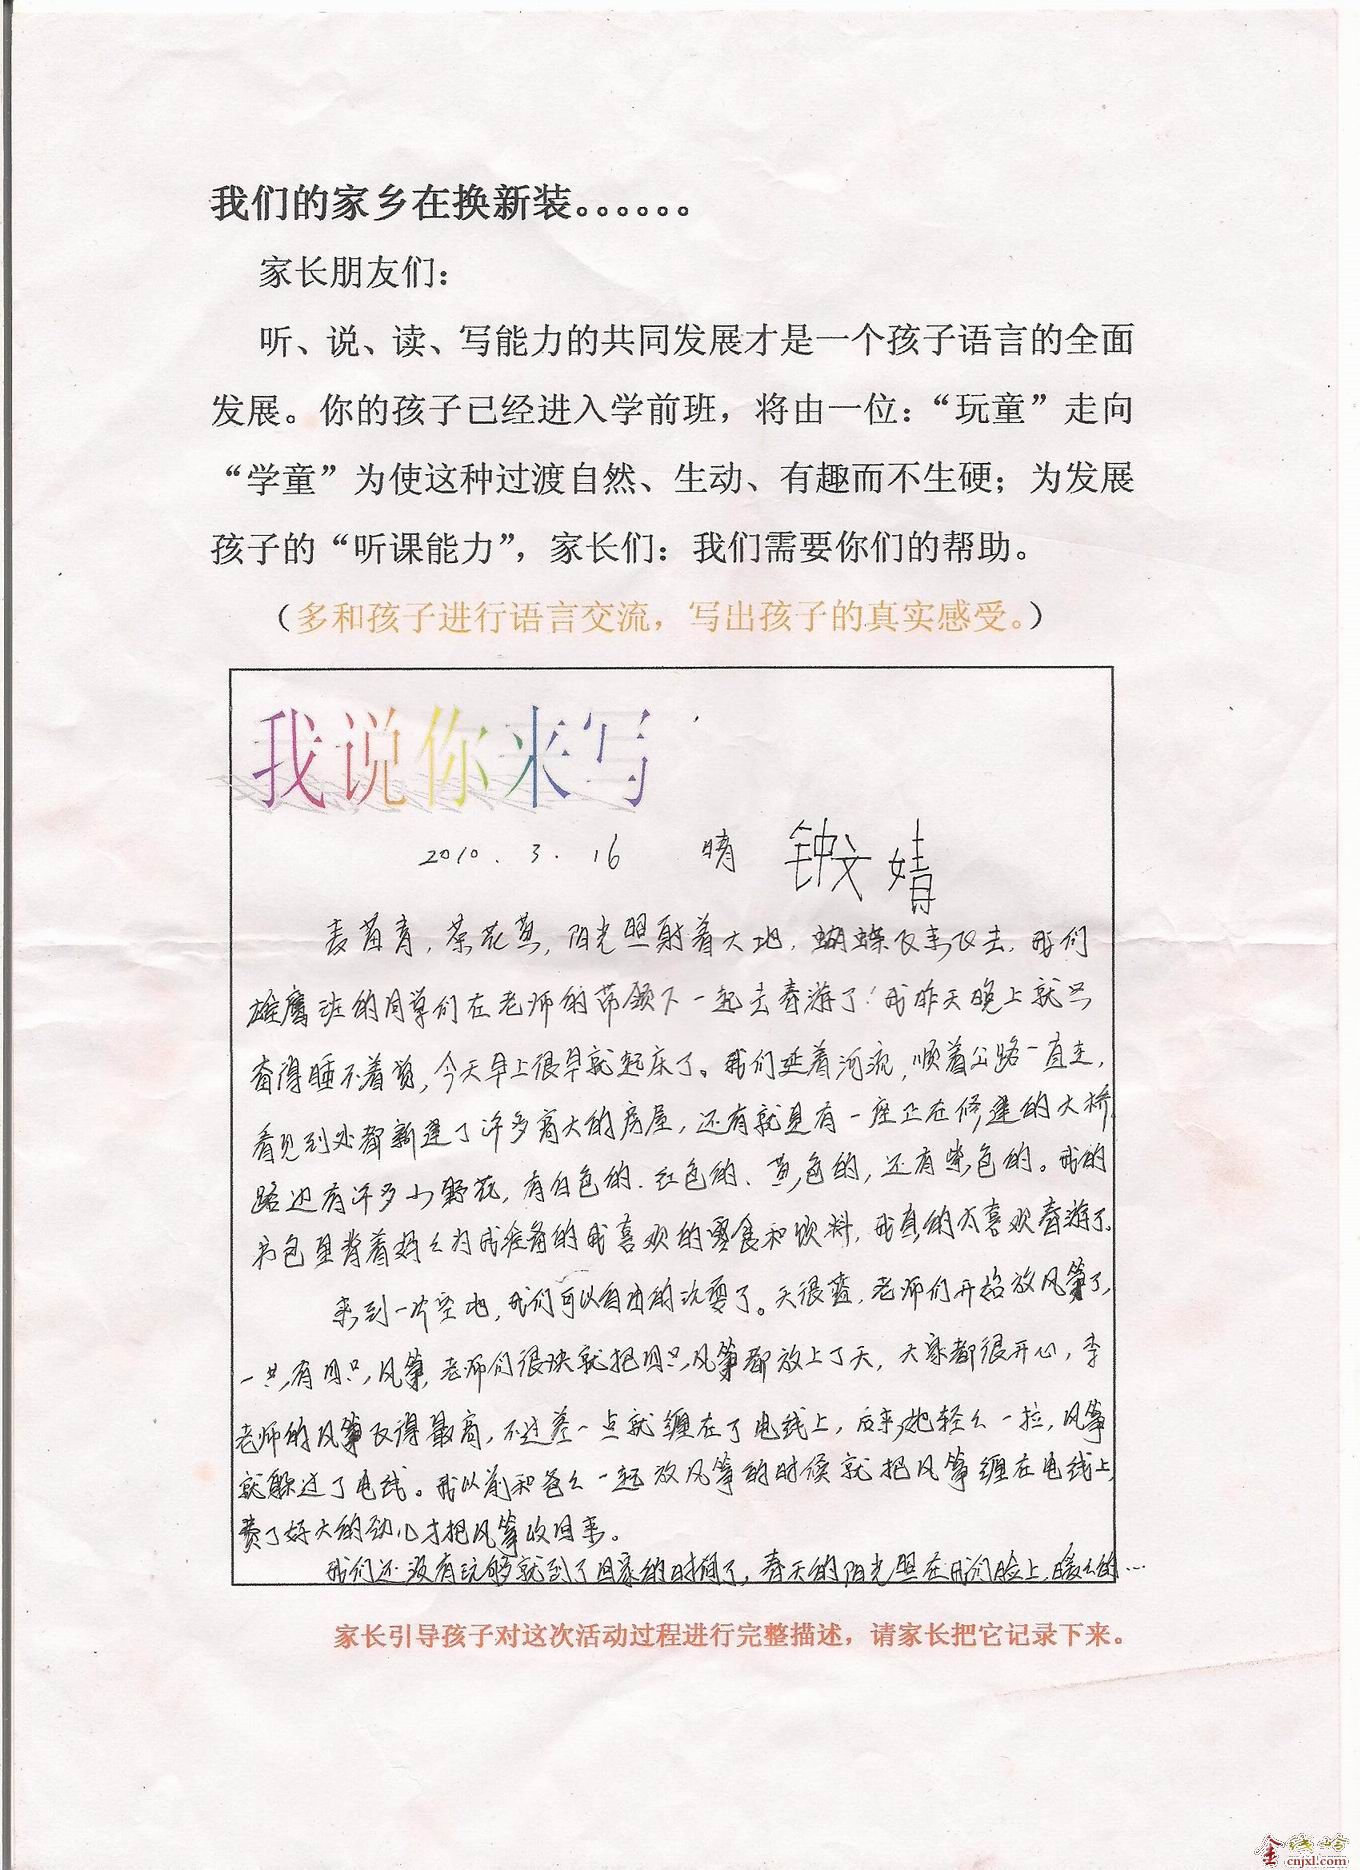 我们的家乡在换新装。。。。。。
家长朋友们：
听、说、读、写能力的共同发展才是一个孩子语言的全面
发展。你的孩子已经进入学前班，将由一位：“玩童”走向
“学童”为使这种过渡自然、生动、有趣而不生硬；为发展
孩子的“听课能力”，家长们：我们需要你们的帮助。
（多和孩子进行语言交流，写出孩子的真实感受。）
我说你来写
2010.3.16 晴 钟文婧
麦苗青，菜花黄，阳光照射着大地，蝴蝶飞来飞去，我们
雄鹰班的同学们在老师的带领下一起去春游了！我昨天晚上就兴
奋得睡不着觉，今天早上很早就起床了。我们延着河流，顺着公路一直走，
看见到处都新建了许多高大的房屋，还有就是有一座正在修建的大桥，
路边有许多小野花，有白色的、红色的、黄色的，还有紫色的。我的
书包里背着妈妈为我准备的我喜欢的零食和饮料，我真的太喜欢春游了。
来到一片空地，我们可以自由的玩耍了。天很蓝，老师们开始放风筝了，
一共有四只风筝，老师们很快就把四只风筝都放上了天，大家都很开心，李
老师的风筝飞得最高，不过差一点就缠在了电线上，后来她轻轻一拉，风筝
就躲过了电线。我以前和爸爸一起放风筝的时候就把风筝缠在电线上，
费了好大的劲儿才把风筝收回来。
我们还没有玩够就到了回家的时间了，春天的阳光照在我们脸上，暖暖的…
家长引导孩子对这次活动过程进行完整描述，请家长把它记录下来。
金线岭
cnjxl.com